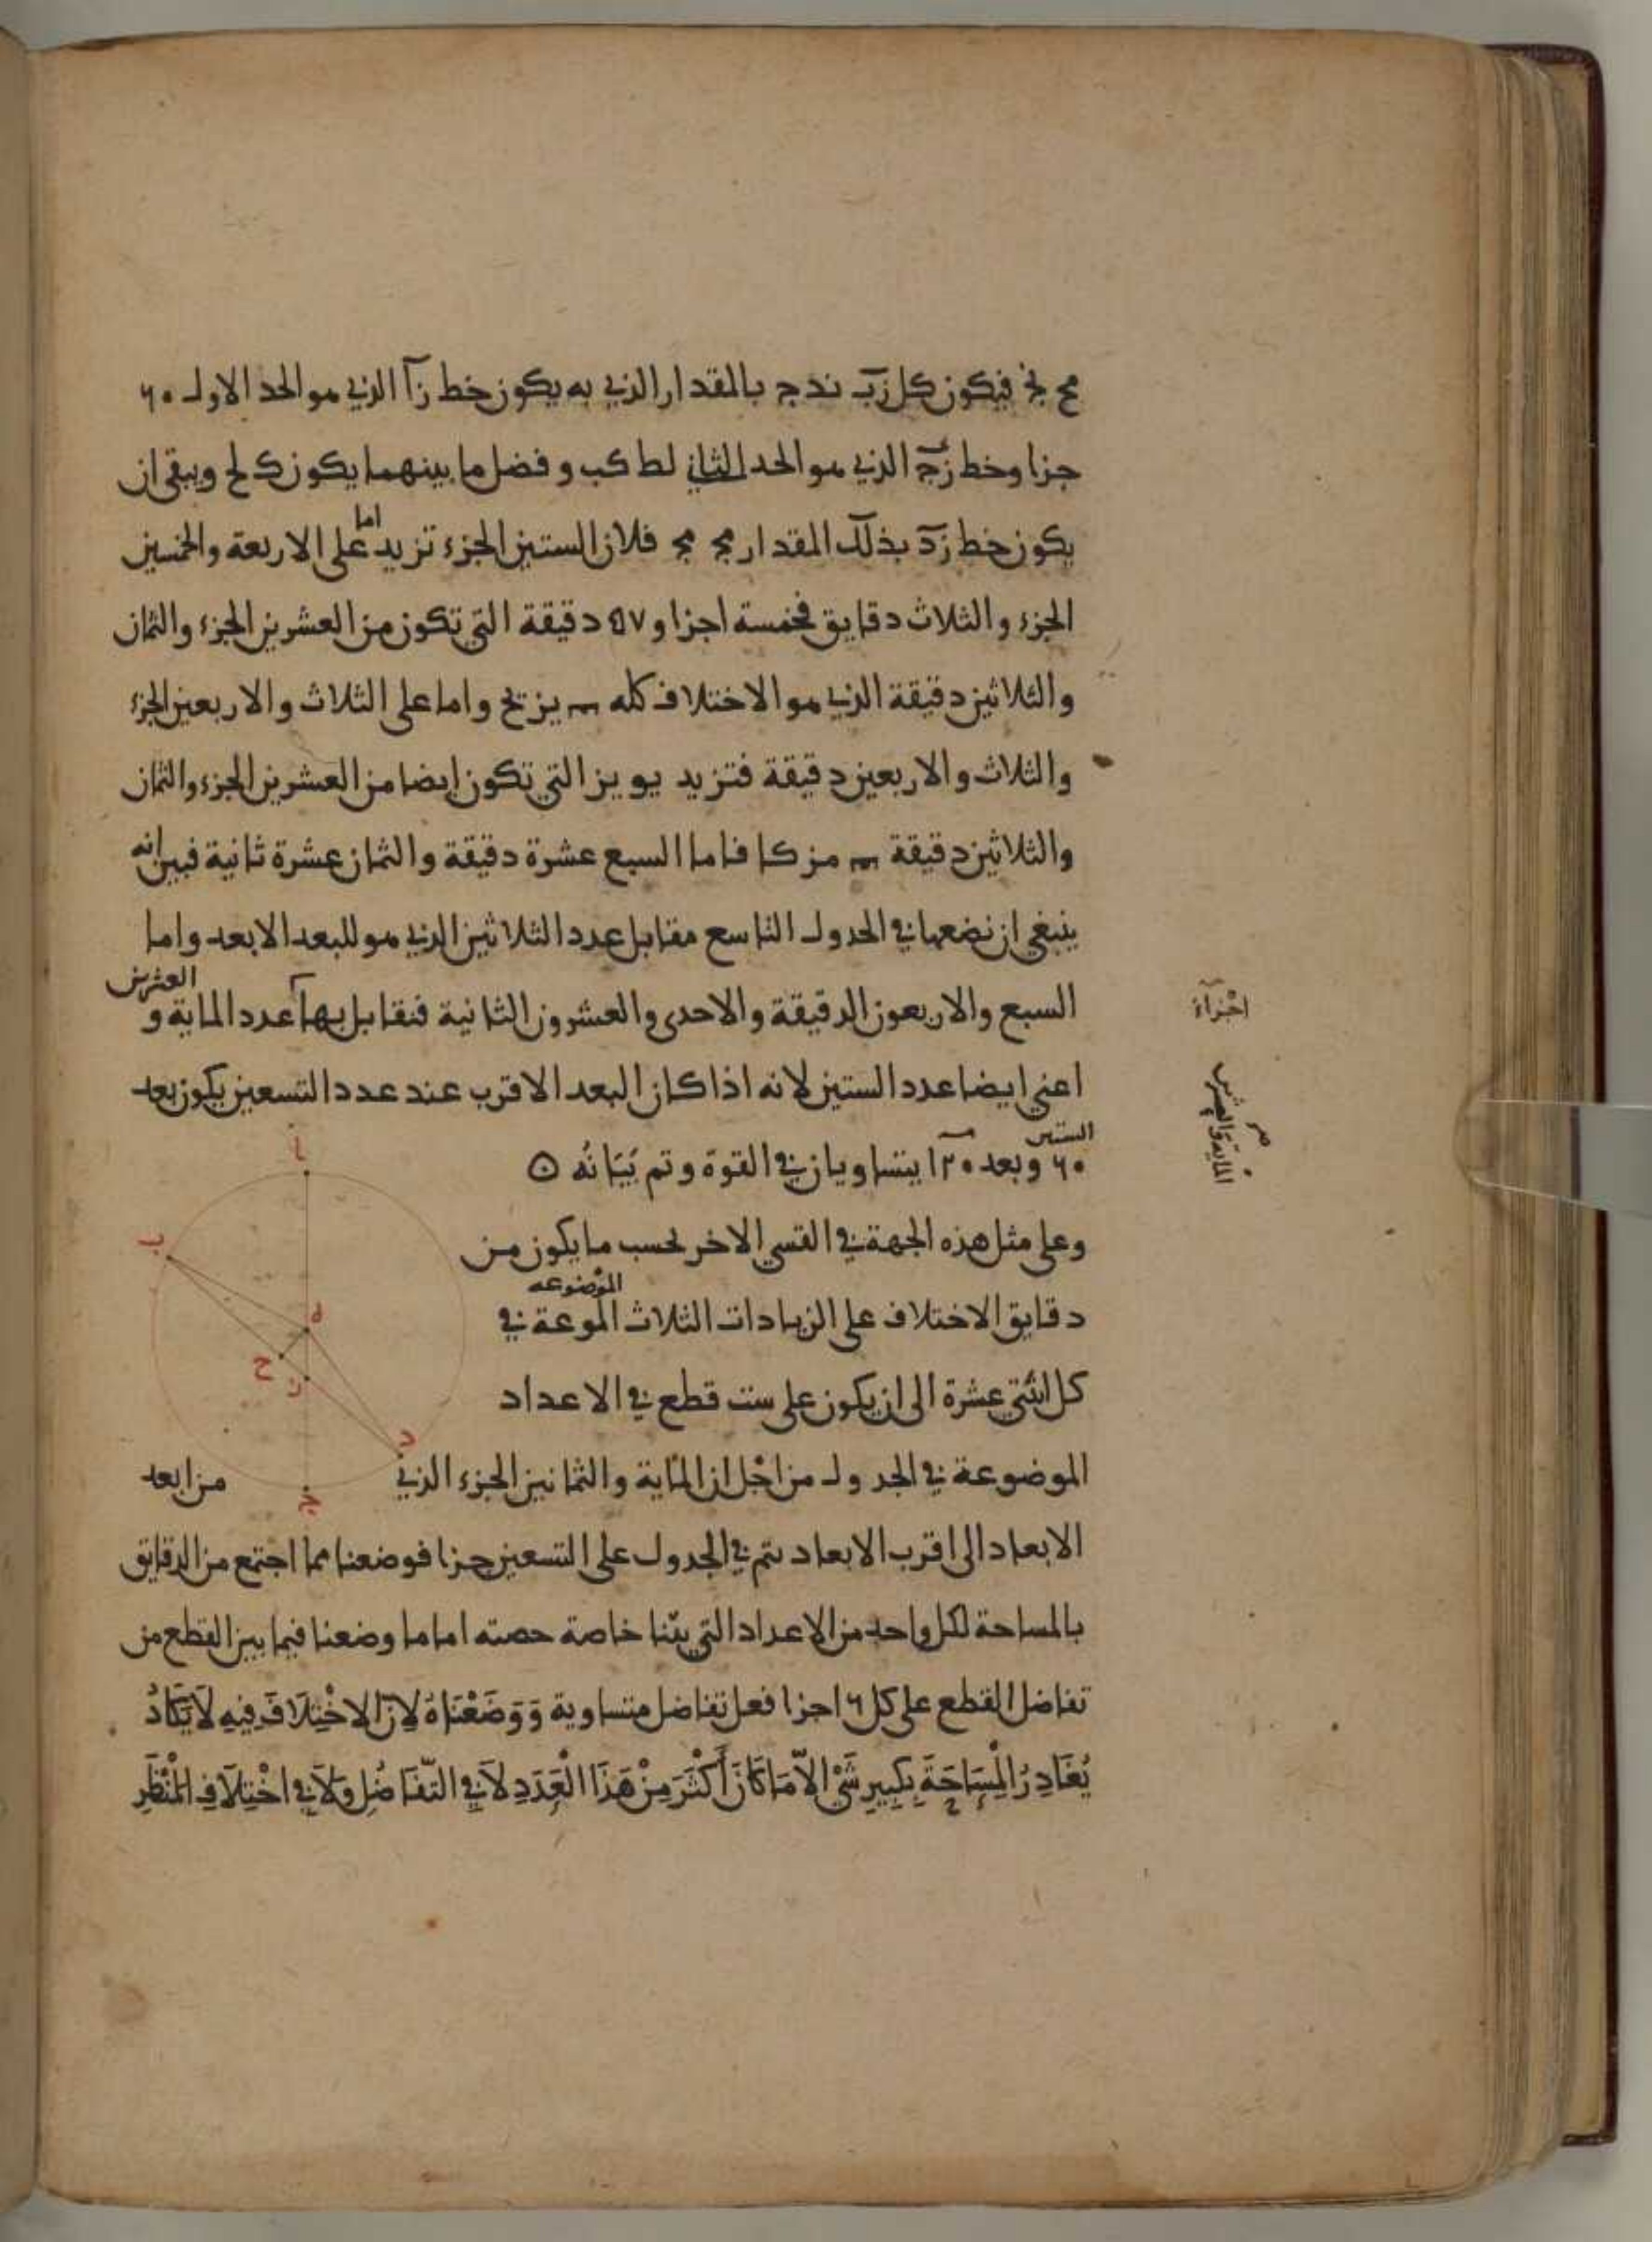 مح نج فيكون كل زب ند ج بالمقدار الذي به يكون خط زا الذي هو الحد الاول ٦٠
جزا وخط زج الذي هو الحد الثاني لط كب وفضل ما بينهما يكون ك لح ويبقى ان
يكون خط زد بذلك المقدار مج مج فلان الستين الجزء تزيد اما على الاربعة والخمسين
الجزء والثلاث دقايق فخمسة اجزا و٥٧ دقيقة التي تكون من العشرين الجزء والثمان
والثلاثين دقيقة الذي هو الاختلاف كله يز يح واما على الثلاث والاربعين الجزء
والثلاث والاربعين دقيقة فتزيد يو يز التي تكون ايضا من العشرين الجزء والثمان
والثلاثين دقيقة مز كا فاما السبع عشرة دقيقة والثمان عشرة ثانية فبين انه
ينبغي ان نضعها في الجدول التاسع مقابل عدد الثلاثين الذي هو للبعد الابعد واما
السبع والاربعون الدقيقة والاحدى والعشرون الثانية فنقابل بها عدد الماية و العشرين
اجزآء
اعني ايضا عدد الستين لانه اذا كان البعد الاقرب عند عدد التسعين يكون بعد
الماية والعشرين
الستين
٦٠ وبعد ١٢٠ يتساويان في القوة وتم بيانه
وعلى مثل هذه الجهة في القسي الاخر بحسب ما يكون من
الموضوعه
دقايق الاختلاف على الزيادات الثلاث الموعة في
كل اثنتي عشرة الى ان يكون على ست قطع في الاعداد
الموضوعة في الجدول من اجل ان الماية والثمانين الجزء الذي من ابعد
الابعاد الى اقرب الابعاد يتم في الجدول على التسعين جزا فوضعنا مما اجتمع من الدقايق
بالمساحة لكل واحد من الاعداد التي بينا خاصة حصته اما ما وضعنا فيما بين القطع من
تفاضل القطع على كل ٦ اجزا فعل تفاضل متساوية وَوَضَعْنَاهُ لِاَنَّ الاخْتِلَافَ فِيهِ لَا يَكَادُ
يُغَادِرُ الْمِسَاحَةَ بِكَبِيرِ شَيْ الاَّ مَا كَانَ أَكْثَرَ مِنْ هَذَا الْعَدَدِ لاَ فِي التَّفَاضُلِ وَلاَ فِي اخْتِلاَفِ الْمَنْظَرِ
ا
ب
ه
ح
ز
د
ج